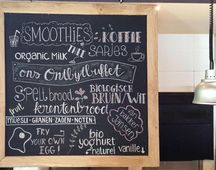 SMOOTHIES
KOFFIE
SAPJES
ORGANIC MILK
ons Ontbijtbuffet
Speltbrood
BIOLOGISCH
BRUIN/WIT
fruit
krentenbrood
MUESLI-GRANEN-ZADEN-NOTEN
FRY
YOUR OWN
EGG!
bio
yoghurt
naturel
vanille